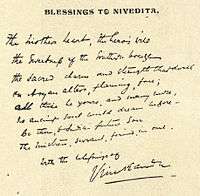 BLESSINGS TO NIVEDITA.
The mother's heart, the hero's will
The sweetness of the southern breeze
The sacred charm and strength that dwell
On Aryan altars, flaming, free;
All these be yours, and many more
No ancient soul could dream before—
Be thou to India's future son
The mistress, servant, friend in one.
With the blessings of
Vivekananda